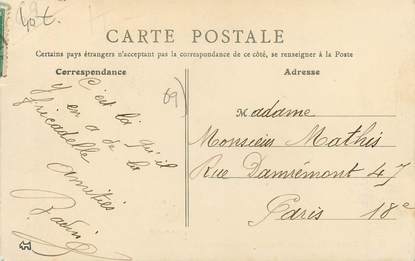 Cpt.
CARTE POSTALE
Certains pays étrangers n'acceptant pas la correspondance de ce côté, se renseigner à la Poste
Correspondance
C'est là qu'il
y en a de la
fricadelle
Amitiés
69)
Adresse
Madame
Monsieur Mathis
Rue Damrémont 47
Paris 18e